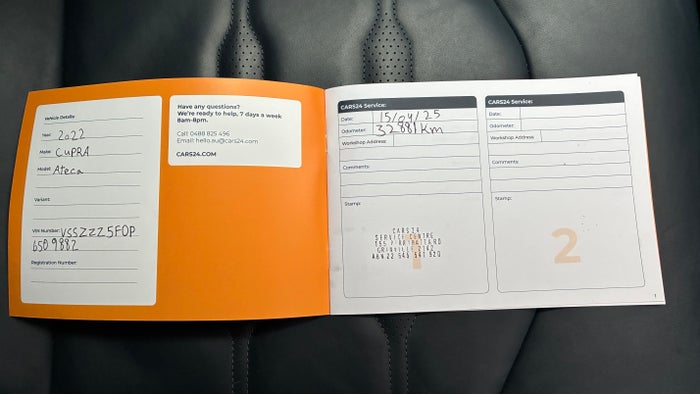 Vehicle Details
Year: 2022
Make: CUPRA
Model: Ateca
Variant:
VIN Number: VSSZZZ5FOP
6509882
Registration Number:
Have any questions?
We're ready to help, 7 days a week
8am-8pm.
Call: 0488 825 496
Email: hello.au@cars24.com
CARS24.COM
CARS24 Service:
Date: 15/04/25
Odometer: 32881 Km
Workshop Address:
Comments:
Stamp:
CARS24
SERVICE CENTRE
GRANVILLE 2142
1
CARS24 Service:
Date:
Odometer:
Workshop Address
Comments:
Stamp:
2
1